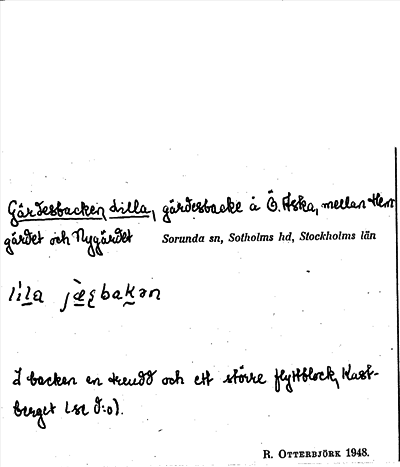 Gärdesbacken, Lilla, gärdesbacke å Ö. Aska, mellan Hem
gärdet och Nygärdet Sorunda sn, Sotholms hd, Stockholms län
lìla jæ̀ʂbakən
I backen en och ett större flyttblock, Kast-
berget (se d:o).
R. OTTERBJÖRK 1948.